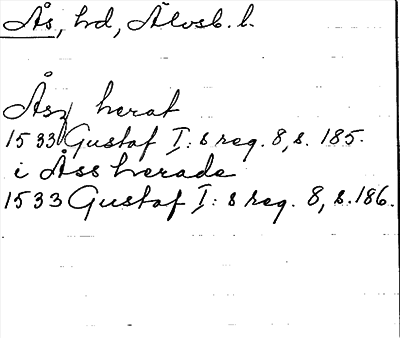 Ås, hd, Älvsb. l.
Åsz herat
1533 Gustaf I:s reg. 8, s. 185.
i Åss herade
1533 Gustaf I:s reg. 8, s. 186.